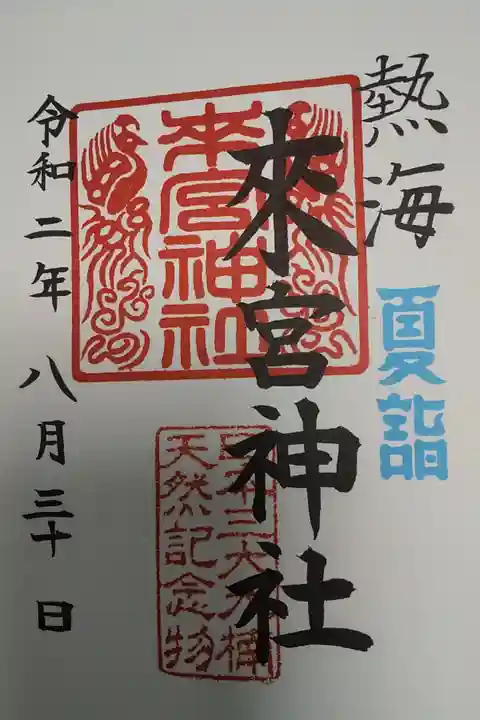 熱海
夏詣
來宮神社
來宮神社
日本三大楠
天然記念物
令和二年 八月三十日